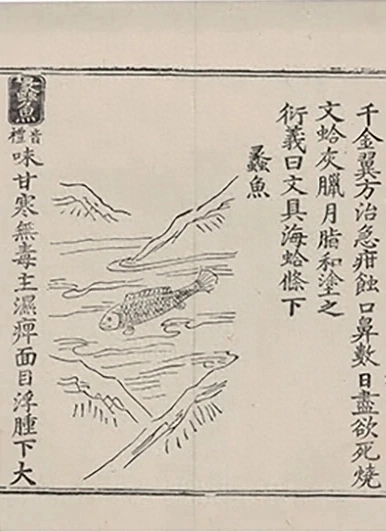 千金翼方治急疳蝕口鼻數日盡欲死燒
文蛤灰臘月脂和塗之
衍義曰文具海蛤條下
蠡魚
蠡魚
音禮
味甘寒無毒主濕痺面目浮腫下大